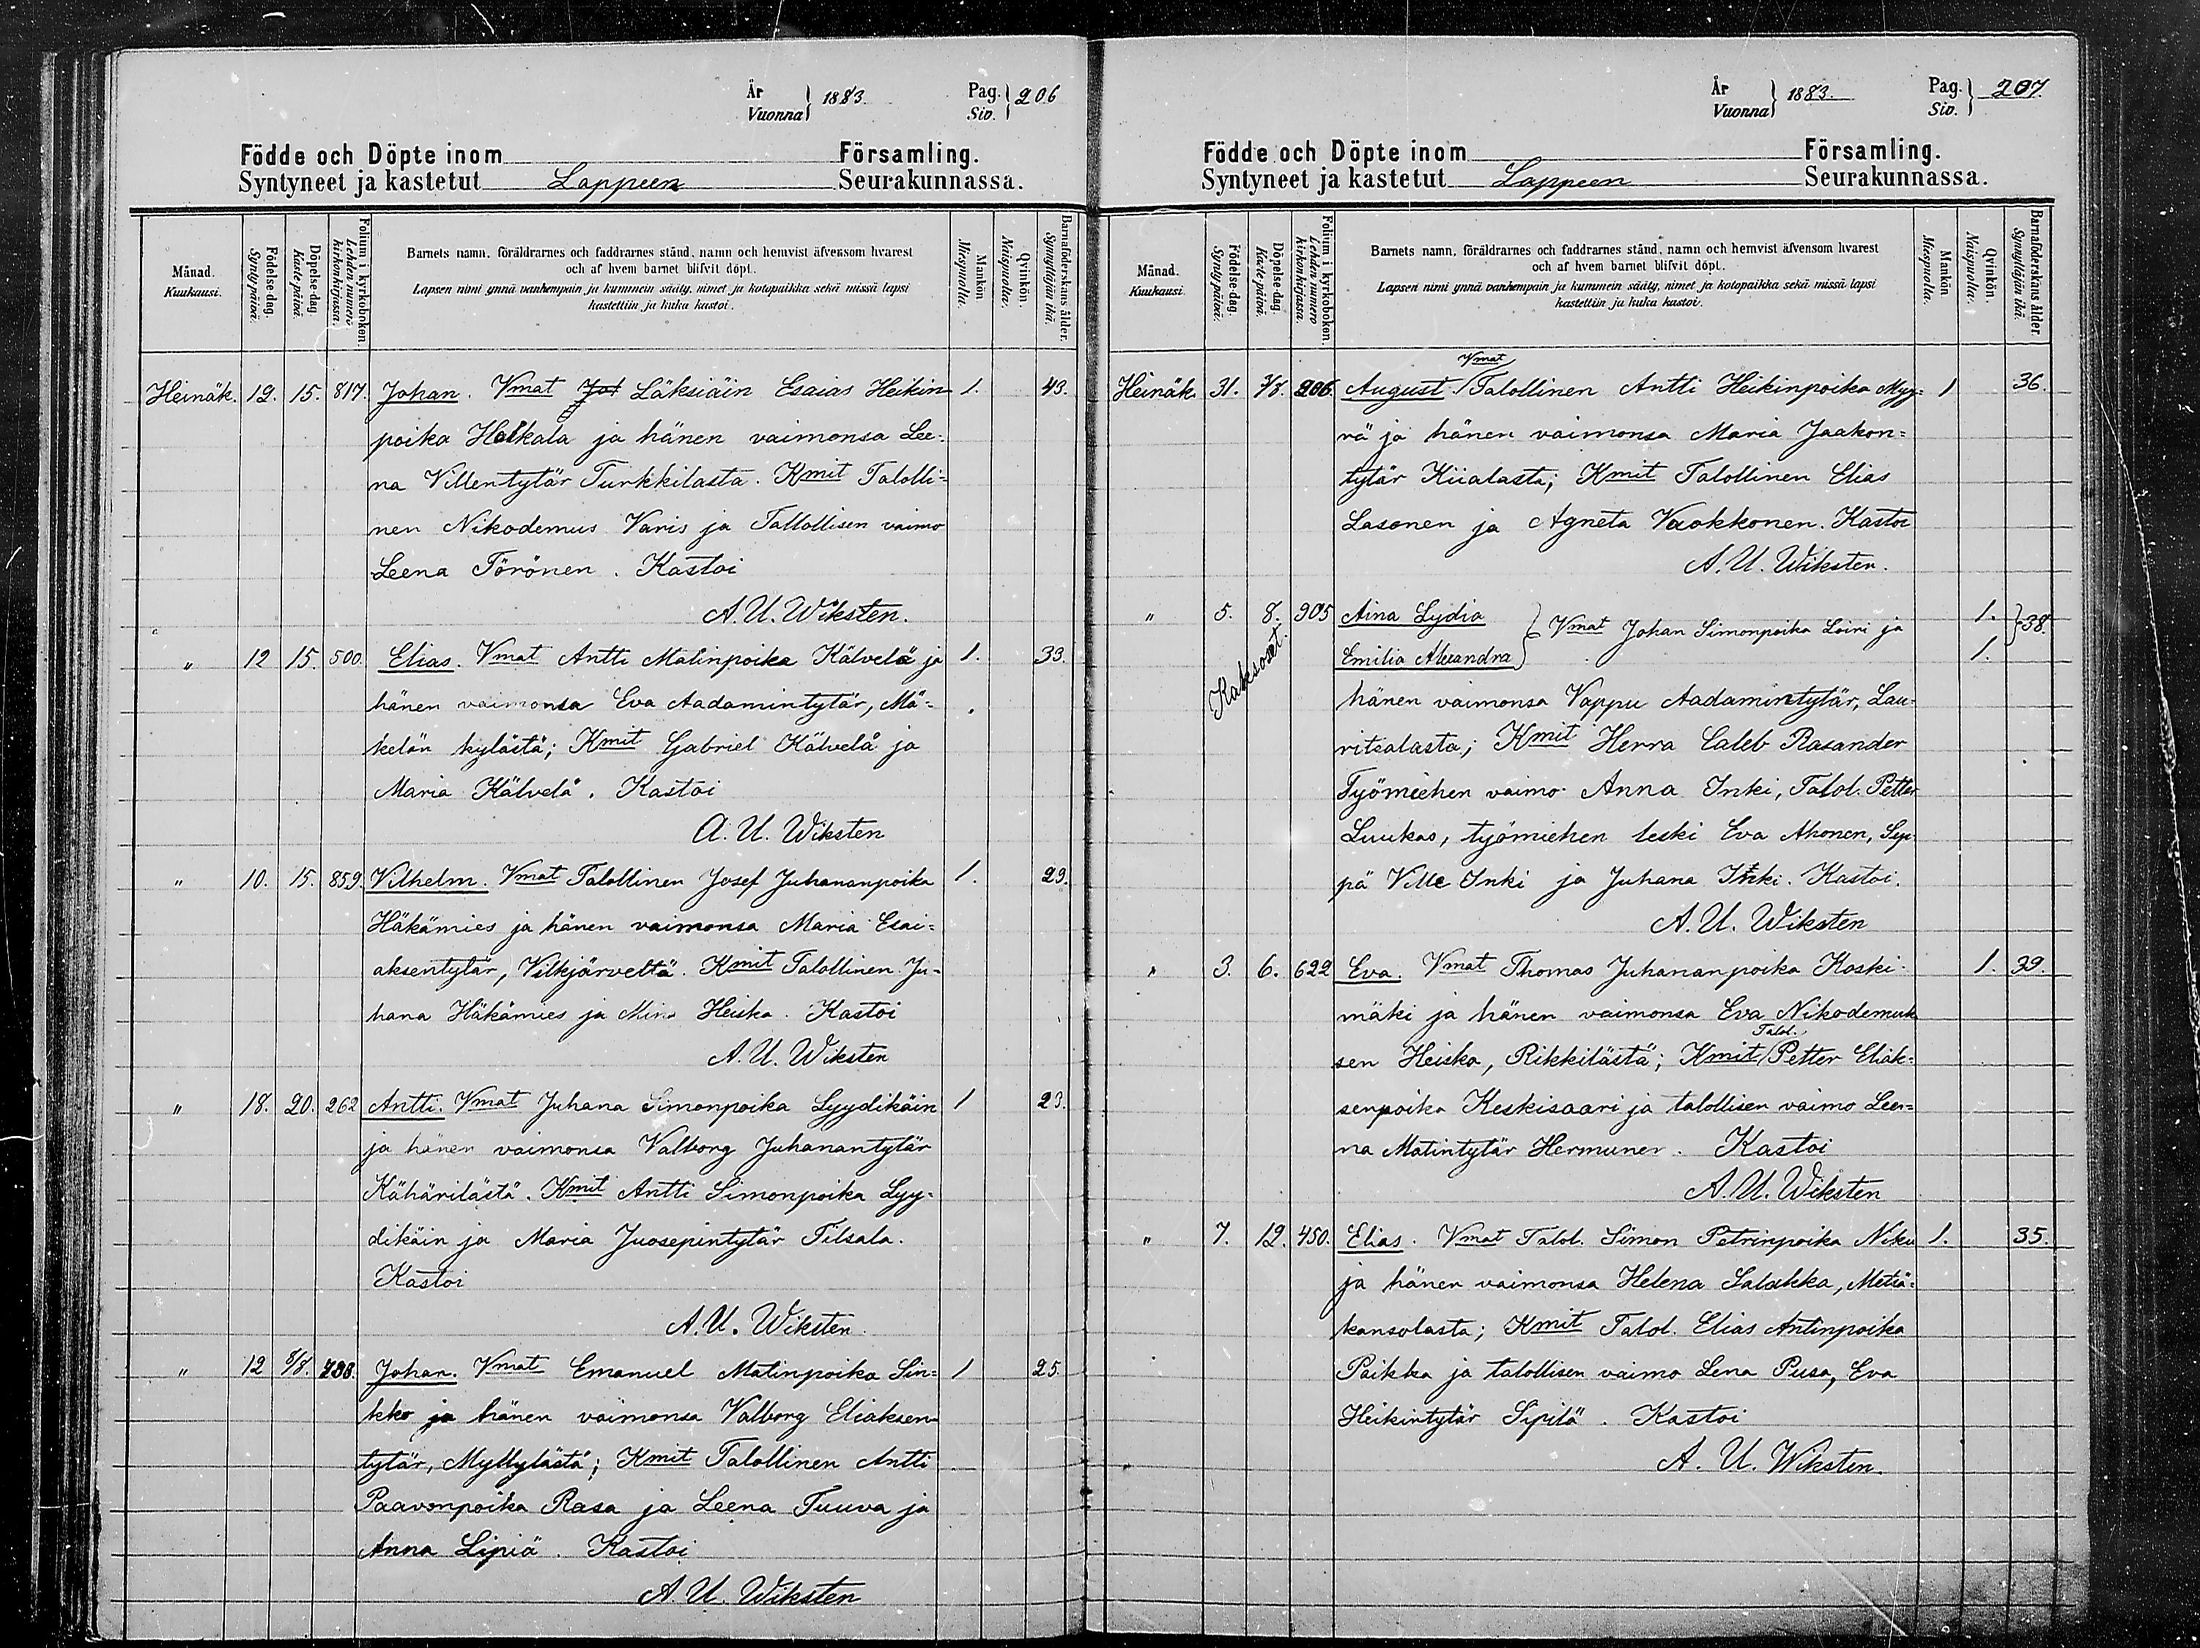 År
Vuonna } 1883.
Pag.
Siv. } 206
Födde och Döpte inom Församling.
Syntyneet ja kastetut Lappeen Seurakunnassa.
Månad.
Kuukausi.
Födelse-dag.
Syntypäivä.
Döpelse-dag.
Kastepäivä.
Folium i kyrkoboken.
Lehden numero
kirkonkirjassa.
Barnets namn, föräldrarnes och faddrarnes stånd, namn och hemvist äfvensom hvarest
och af hvem barnet blifvit döpt.
Lapsen nimi ynnä vanhempain ja kummein sääty, nimet ja kotopaikka sekä missä lapsi
kastettiin ja kuka kastoi.
Mankön
Miespuolia.
Qvinkön.
Naispuolia.
Barnaföderskans ålder.
Synnyttäjän ikä.
Heinäk. 12. 15. 817. Johan. Vmat Läksiäin Esaias Heikin- 1. 43.
poika Holkala ja hänen vaimonsa Lee-
na Villentytär Turkkilasta. Kmit Talolli-
nen Nikodemus Varis ja Tallollisen vaimo
Leena Törönen. Kastoi
A. U. Wiksten.
" 12 15. 500. Elias. Vmat Antti Matinpoika Kälvelä ja 1. 33.
hänen vaimonsa Eva Aadamintytär, Mä-
kelän kylästä; Kmit Gabriel Kälvelä ja
Maria Kälvelä. Kastoi
A. U. Wiksten
" 10. 15. 859. Vilhelm. Vmat Talollinen Josef Juhananpoika 1. 29.
Häkämies ja hänen vaimonsa Maria Esai-
aksentytär, Vilkjärveltä. Kmit Talollinen Ju-
hana Häkämies ja Mina Heiska. Kastoi
A. U. Wiksten
" 18. 20. 262 Antti. Vmat Juhana Simonpoika Lyydikäin 1 23.
ja hänen vaimonsa Valborg Juhanantytär
Kähärilästä. Kmit Antti Simonpoika Lyy-
dikäin ja Maria Juosepintytär Tilsala.
Kastoi
A. U. Wiksten.
" 12 Johan. Vmat Emanuel Matinpoika Sin- 1 25.
kko ja hänen vaimonsa Valborg Eliaksen-
tytär, Myllylästä; Kmit Talollinen Antti
Paavonpoika Rasa ja Leena Tuuva ja
Anna Lipiä. Kastoi
A. U. Wiksten
År
Vuonna } 1883.
Pag.
Siv. } 207.
Födde och Döpte inom Församling.
Syntyneet ja kastetut Lappeen Seurakunnassa.
Månad.
Kuukausi.
Födelse-dag.
Syntypäivä.
Döpelse-dag.
Kastepäivä.
Folium i kyrkoboken.
Lehden numero
kirkonkirjassa.
Barnets namn, föräldrarnes och faddrarnes stånd, namn och hemvist äfvensom hvarest
och af hvem barnet blifvit döpt.
Lapsen nimi ynnä vanhempain ja kummein sääty, nimet ja kotopaikka sekä missä lapsi
kastettiin ja kuka kastoi.
Mankön
Miespuolia.
Qvinkön.
Naispuolia.
Barnaföderskans ålder.
Synnyttäjän ikä.
Vmat
Heinäk. 31. 206. August. Talollinen Antti Heikinpoika Myy- 1 36.
rä ja hänen vaimonsa Maria Jaakon-
tytär Kiialasta; Kmit Talollinen Elias
Lasonen ja Agneta Vaokkonen. Kastoi
A. U. Wiksten.
" 5. 8. 905 Aina Lydia 1.
} Vmat Johan Simonpoika Loiri ja } 38.
Kaksoset. Emilia Alexandra 1.
hänen vaimonsa Vappu Aadamintytär, Lau-
ritsalasta; Kmit Herra Caleb Rasander
Työmiehen vaimo Anna Inki, Talol. Petter
Luukas, työmiehen leski Eva Ahonen, Sep-
pä Ville Inki ja Juhana Inki. Kastoi.
A. U. Wiksten
" 3. 6. 622 Eva. Vmat Thomas Juhananpoika Koski- 1. 39.
mäki ja hänen vaimonsa Eva Nikodemuk
Talol.
sen Heiska, Rikkilästä; Kmit Petter Eliak-
senpoika Keskisaari ja talollisen vaimo Lee-
na Matintytär Hermunen. Kastoi
A. U. Wiksten
" 7. 12. 450. Elias. Vmat Talol. Simon Petrinpoika Niku 1. 35.
ja hänen vaimonsa Helena Salakka, Metsä-
kansolasta; Kmit Talol. Elias Antinpoika
Paikka ja talollisen vaimo Lena Pusa, Eva
Heikintytär Sipilä. Kastoi
A. U. Wiksten.